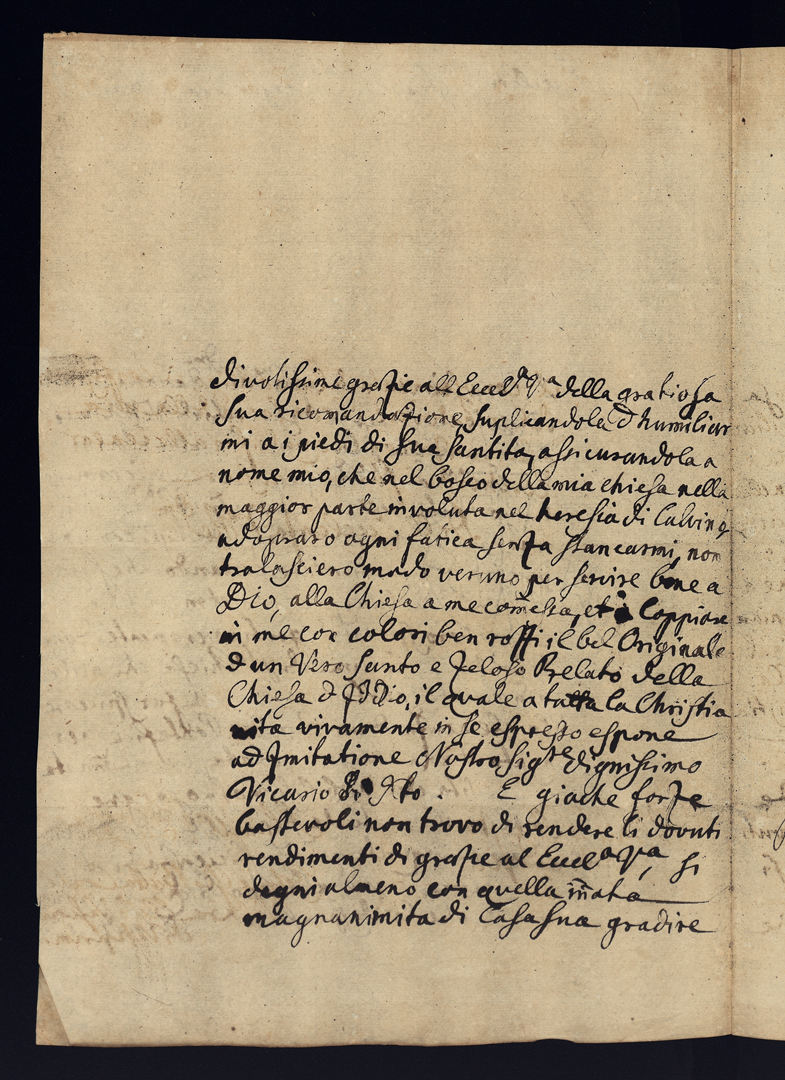 divotissime grazie all Eccel.ª V.ª della gratiosa
sua ricomandazione, suplicandola d humiliar
mi a i piedi di sua santita, assicurandola a
nome mio, che nel bosco della mia chiesa nella
maggior parte involuta nel heresia di Calvino
adopraro ogni fatica senza stancarmi, non
tralasciero modo veruno per servire bene a
Dio, alla Chiesa a me com̃essa, et Coppiare
in me con colori ben rossi il bel Originale
d un Vero Santo e Zeloso Prelato della
Chiesa d Iddio, il quale a tutta la Christia
nita vivamente in se espresso espone
ad Imitatione Nostro Sig.re dignissimo
Vicario di Xto. E giache forze
bastevoli non trovo di rendere li dovuti
rendimenti di grazie al Eccel.ª V.ª, si
degni almeno con quella iñata
magnanimita di Casa sua gradire